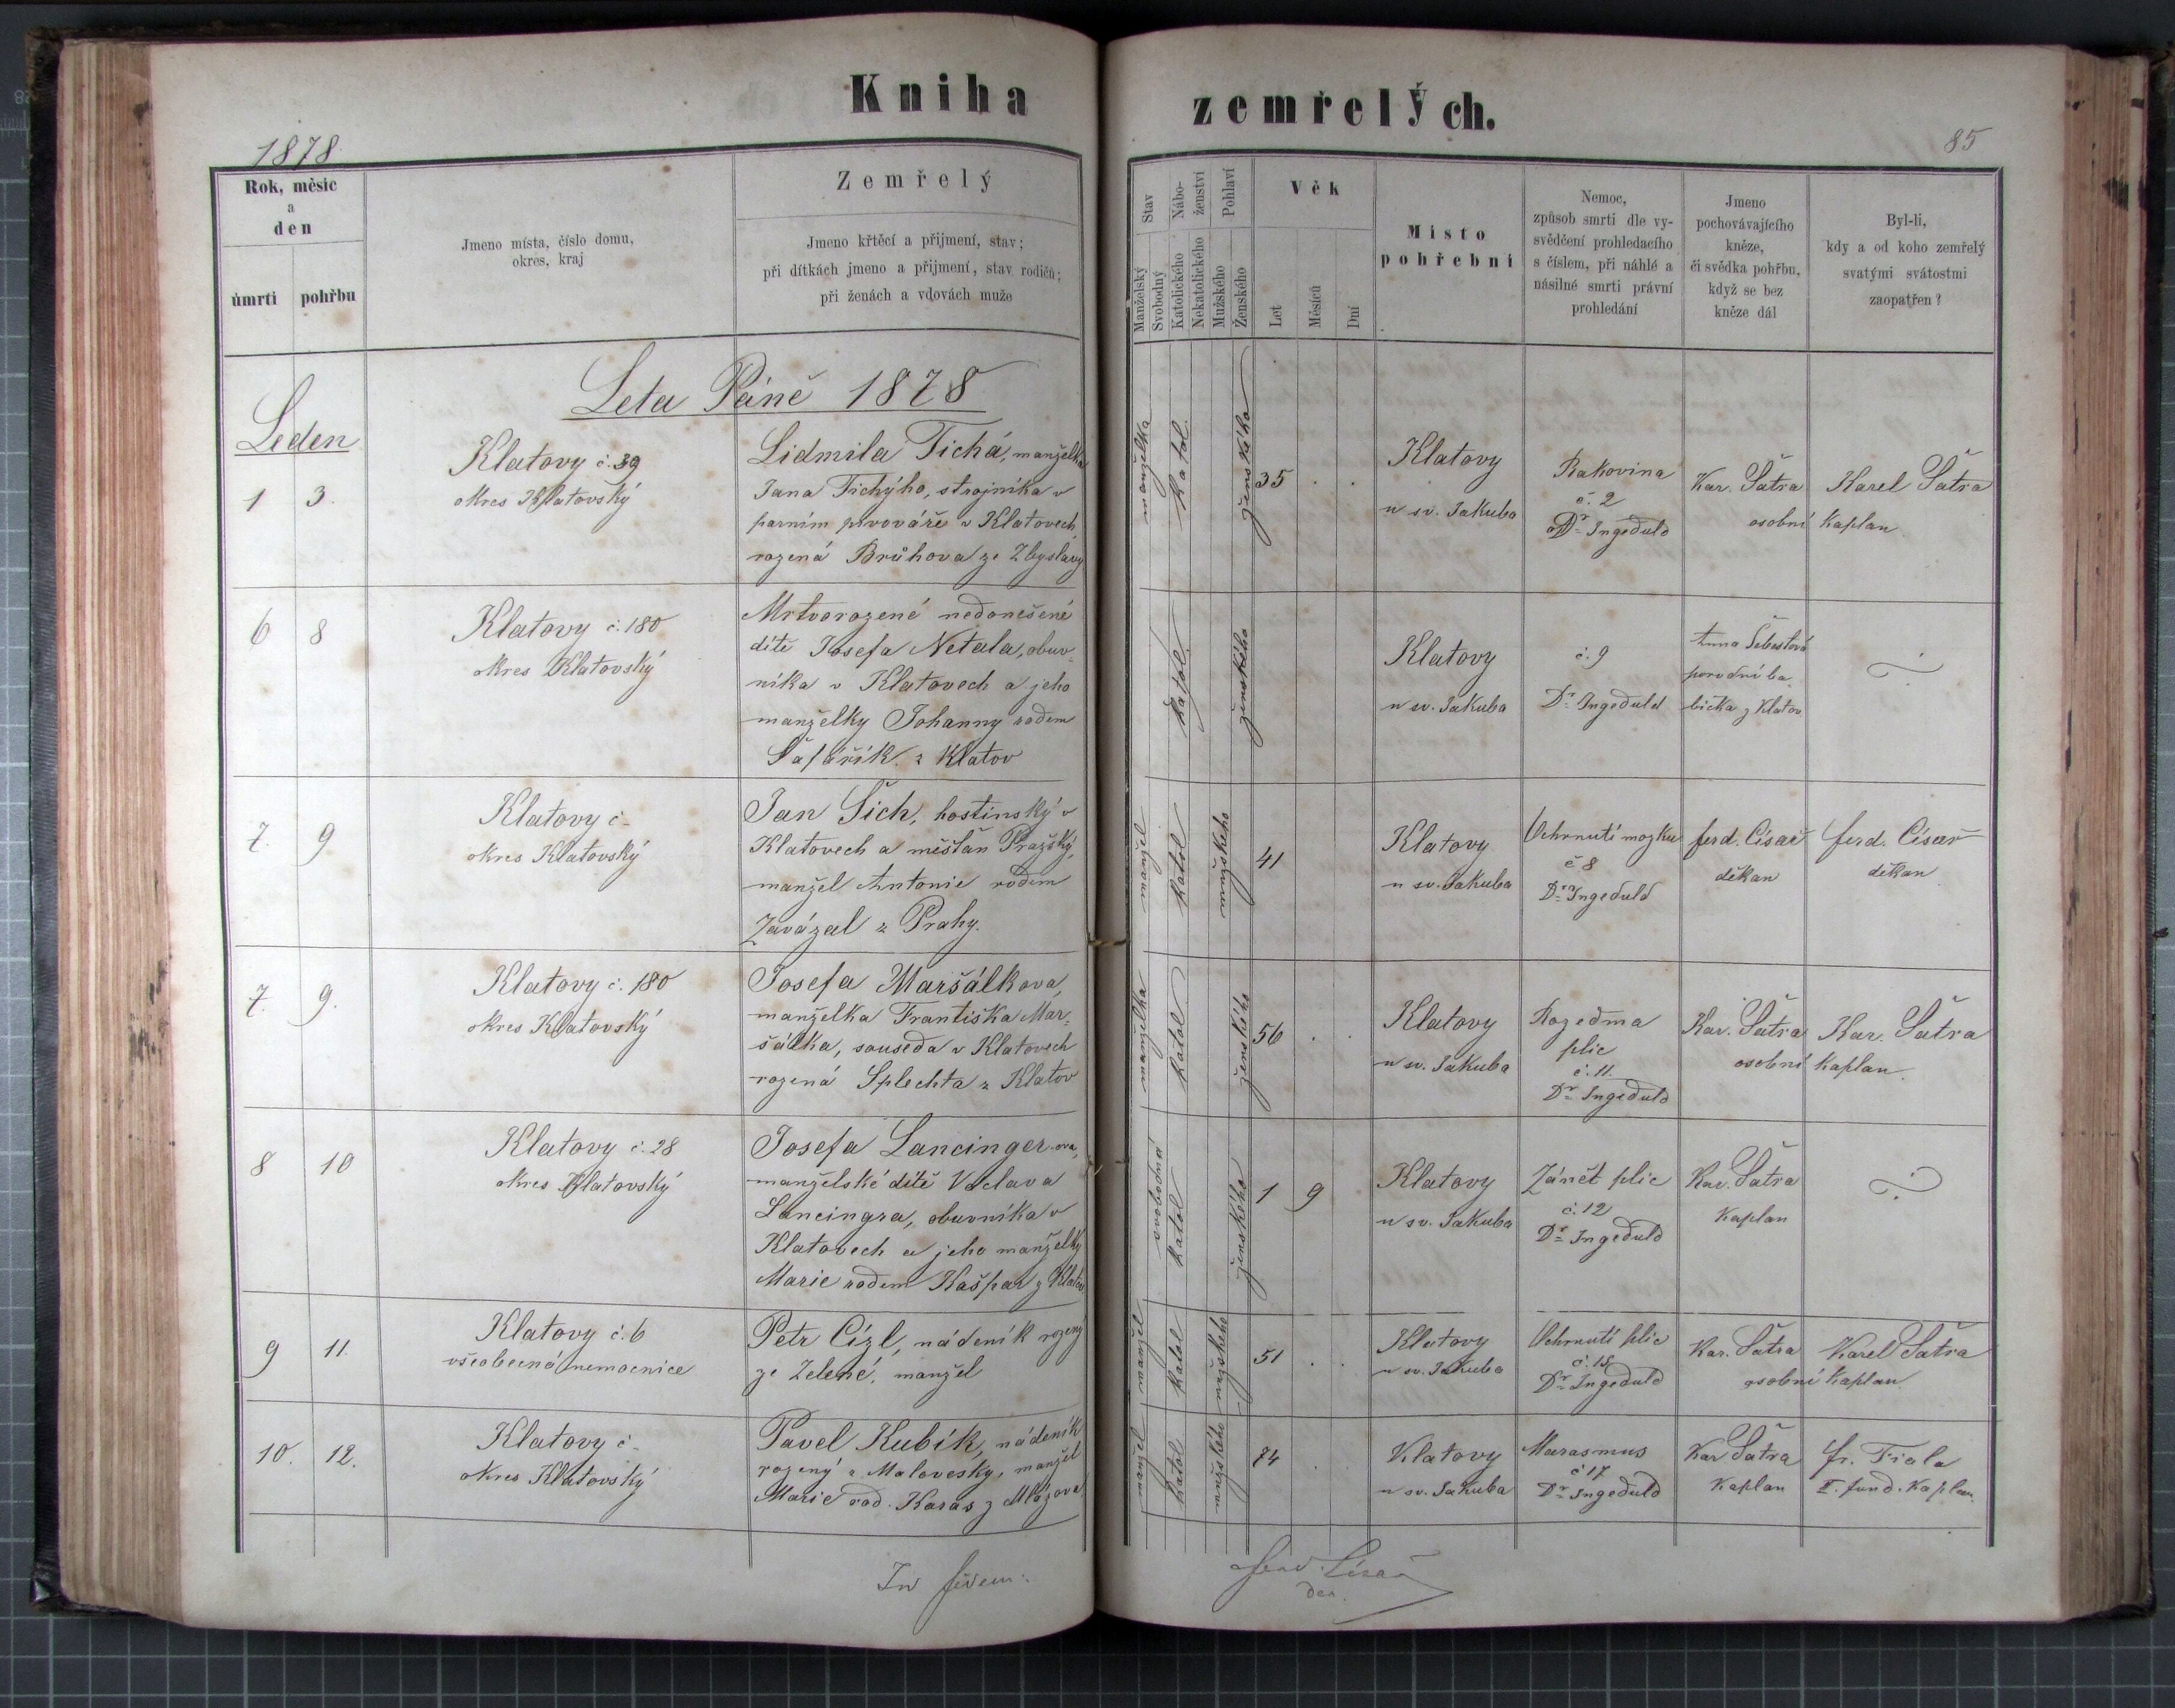 Kniha zemřelých.
1878
85
Rok, měsíc
a
den
úmrtí
pohřbu
Jmeno místa, číslo domu,
okres, kraj
Zemřelý
Jmeno křtěcí a přijmení, stav;
při dítkách jmeno a přijmení, stav rodičů;
při ženách a vdovách muže
Stav
Manželský
Svobodný
Nábo-
ženství
Katolického
Nekatolického
Pohlaví
Mužského
Ženského
Věk
Let
Měsíců
Dní
Místo
pohřební
Nemoc,
způsob smrti dle vy-
svědčení prohledacího
s číslem, při náhlé a
násilné smrti právní
prohledání
Jmeno
pochovávajícího
kněze,
či svědka pohřbu,
když se bez
kněze dál
Byl-li,
kdy a od koho zemřelý
svatými svátostmi
zaopatřen?
Leta Páně 1878
Leden
1 3.
Klatovy č. 39
okres Klatovský
Lidmila Tichá, manželka
Jana Tichýho, strojníka v
parním pivováře v Klatovech
rozená Brůhova ze Zbyslavy
manželka
katol.
ženského
35
Klatovy
u sv. Jakuba
Rakovina
č. 2
Dr Ingeduld
Kar. Šatra
Karel Šatra
osobní kaplan
6 8
Klatovy č. 180
okres Klatovský
Mrtvorozené nedonešené
dítě Josefa Netala, obuv-
níka v Klatovech a jeho
manželky Johanny rodem
Šafařík z Klatov
katol.
ženského
Klatovy
u sv. Jakuba
č. 9
Dr Ingeduld
Anna Šebestová
porodní ba
bička z Klatov
7. 9
Klatovy č -
okres Klatovský
Jan Šich, hostinský v
Klatovech a měšťan Pražský,
manžel Antonie rodem
Zavázal z Prahy.
manžel
katol
mužského
41
Klatovy
u sv. Jakuba
Ochrnutí mozku
č 8
Dr Ingeduld
ferd. Císař
děkan
ferd. Císař
děkan
7. 9.
Klatovy č. 180
okres Klatovský
Josefa Maršálkova,
manželka Františka Mar-
šálka, souseda v Klatovech
rozená Splechta z Klatov
manželka
katol
ženského
56
Klatovy
u sv. Jakuba
Rozedma
plic
č. 11.
Dr Ingeduld
Kar. Šatra
Kar. Šatra
osobní kaplan
8 10
Klatovy č. 28
okres Klatovský
Josefa Lancinger ova,
manželské dítě Václava
Lancingra, obuvníka v
Klatovech a jeho manželky
Marie rodem Kašpar z Klatov
svobodná
katol
ženského
1 9
Klatovy
u sv. Jakuba
Zánět plic
č. 12
Dr Ingeduld
Kar. Šatra
kaplan
9 11.
Klatovy č. 6
všeobecná nemocnice
Petr Cízl, nádeník rozený
ze Zelené, manžel
manžel
katol
mužského
51
Klatovy
u sv. Jakuba
Ochrnutí plic
č. 15
Dr Ingeduld
Kar. Šatra
Karel Šatra
osobní kaplan
10. 12.
Klatovy č -
okres Klatovský
Pavel Kubík, nádeník
rozený z Malovesky, manžel
Marie rod. Karas z Mlázova
manžel
katol
mužského
74
Klatovy
u sv. Jakuba
Marasmus
č 17
Dr Ingeduld
Kar Šatra
kaplan
fr. Fiala
II. fund. kaplan.
ferd. Císař